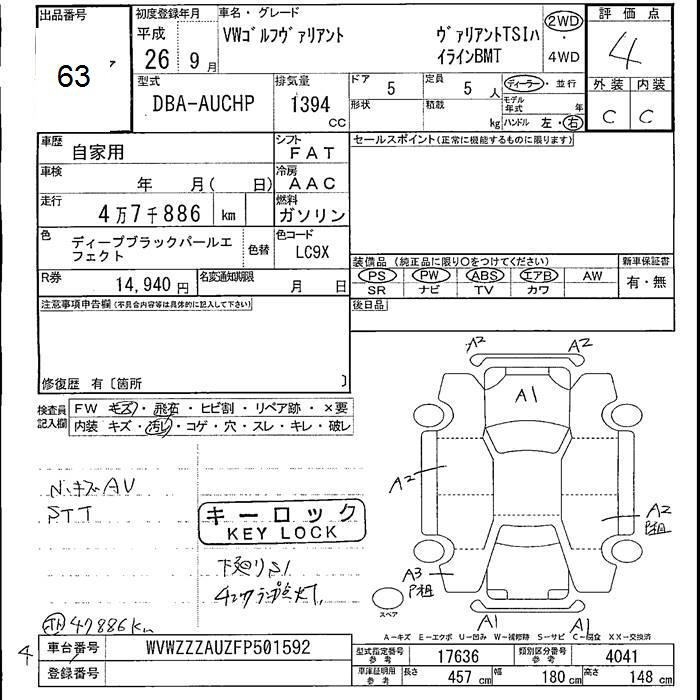 出品番号 初度登録年月 車名・グレード 評価点
63 ア 平成 26 9月 VWｺﾞﾙﾌヴァリアント ヴァリアントTSIハ 2WD ・ 4WD 4
イラインBMT
型式 排気量 ドア 定員 ディーラー・並行 外装 内装
DBA-AUCHP 1394 CC 5 5 人 モデル年式 年 C C
形状 積載 kg ハンドル 左・右
車歴 自家用 シフト FAT セールスポイント(正常に機能するものに限ります)
車検 年 月( 日) 冷房 AAC
走行 4万7千886 km 燃料 ガソリン
色 ディープブラックパールエフェクト 色替 色コード LC9X
装備品 (純正品に限り○をつけてください) 新車保証書
R券 14,940円 名変通知期限 月 日 PS PW ABS エアB AW 有・無
SR ナビ TV カワ
注意事項申告欄(不具合内容等は具体的に記入して下さい) 後日品
修復歴 有〔箇所 〕
検査員 FW キズ・飛石・ヒビ割・リペア跡・×要
記入欄 内装 キズ・汚レ・コゲ・穴・スレ・キレ・破レ
A2 A2
A1
N.キズ AV A2
STT キーロック A2
KEY LOCK P祖
下廻りS1 A3
P祖
スペア
A1 A1
47886km
A-キズ E-エクボ U-凹み W-補修跡 S-サビ C-腐食 XX-交換済
4 車台番号 WVWZZZAUZFP501592 型式指定番号 参考 17636 類別区分番号 参考 4041
登録番号 車庫証明用 参考 長さ 457 cm 幅 180 cm 高さ 148 cm